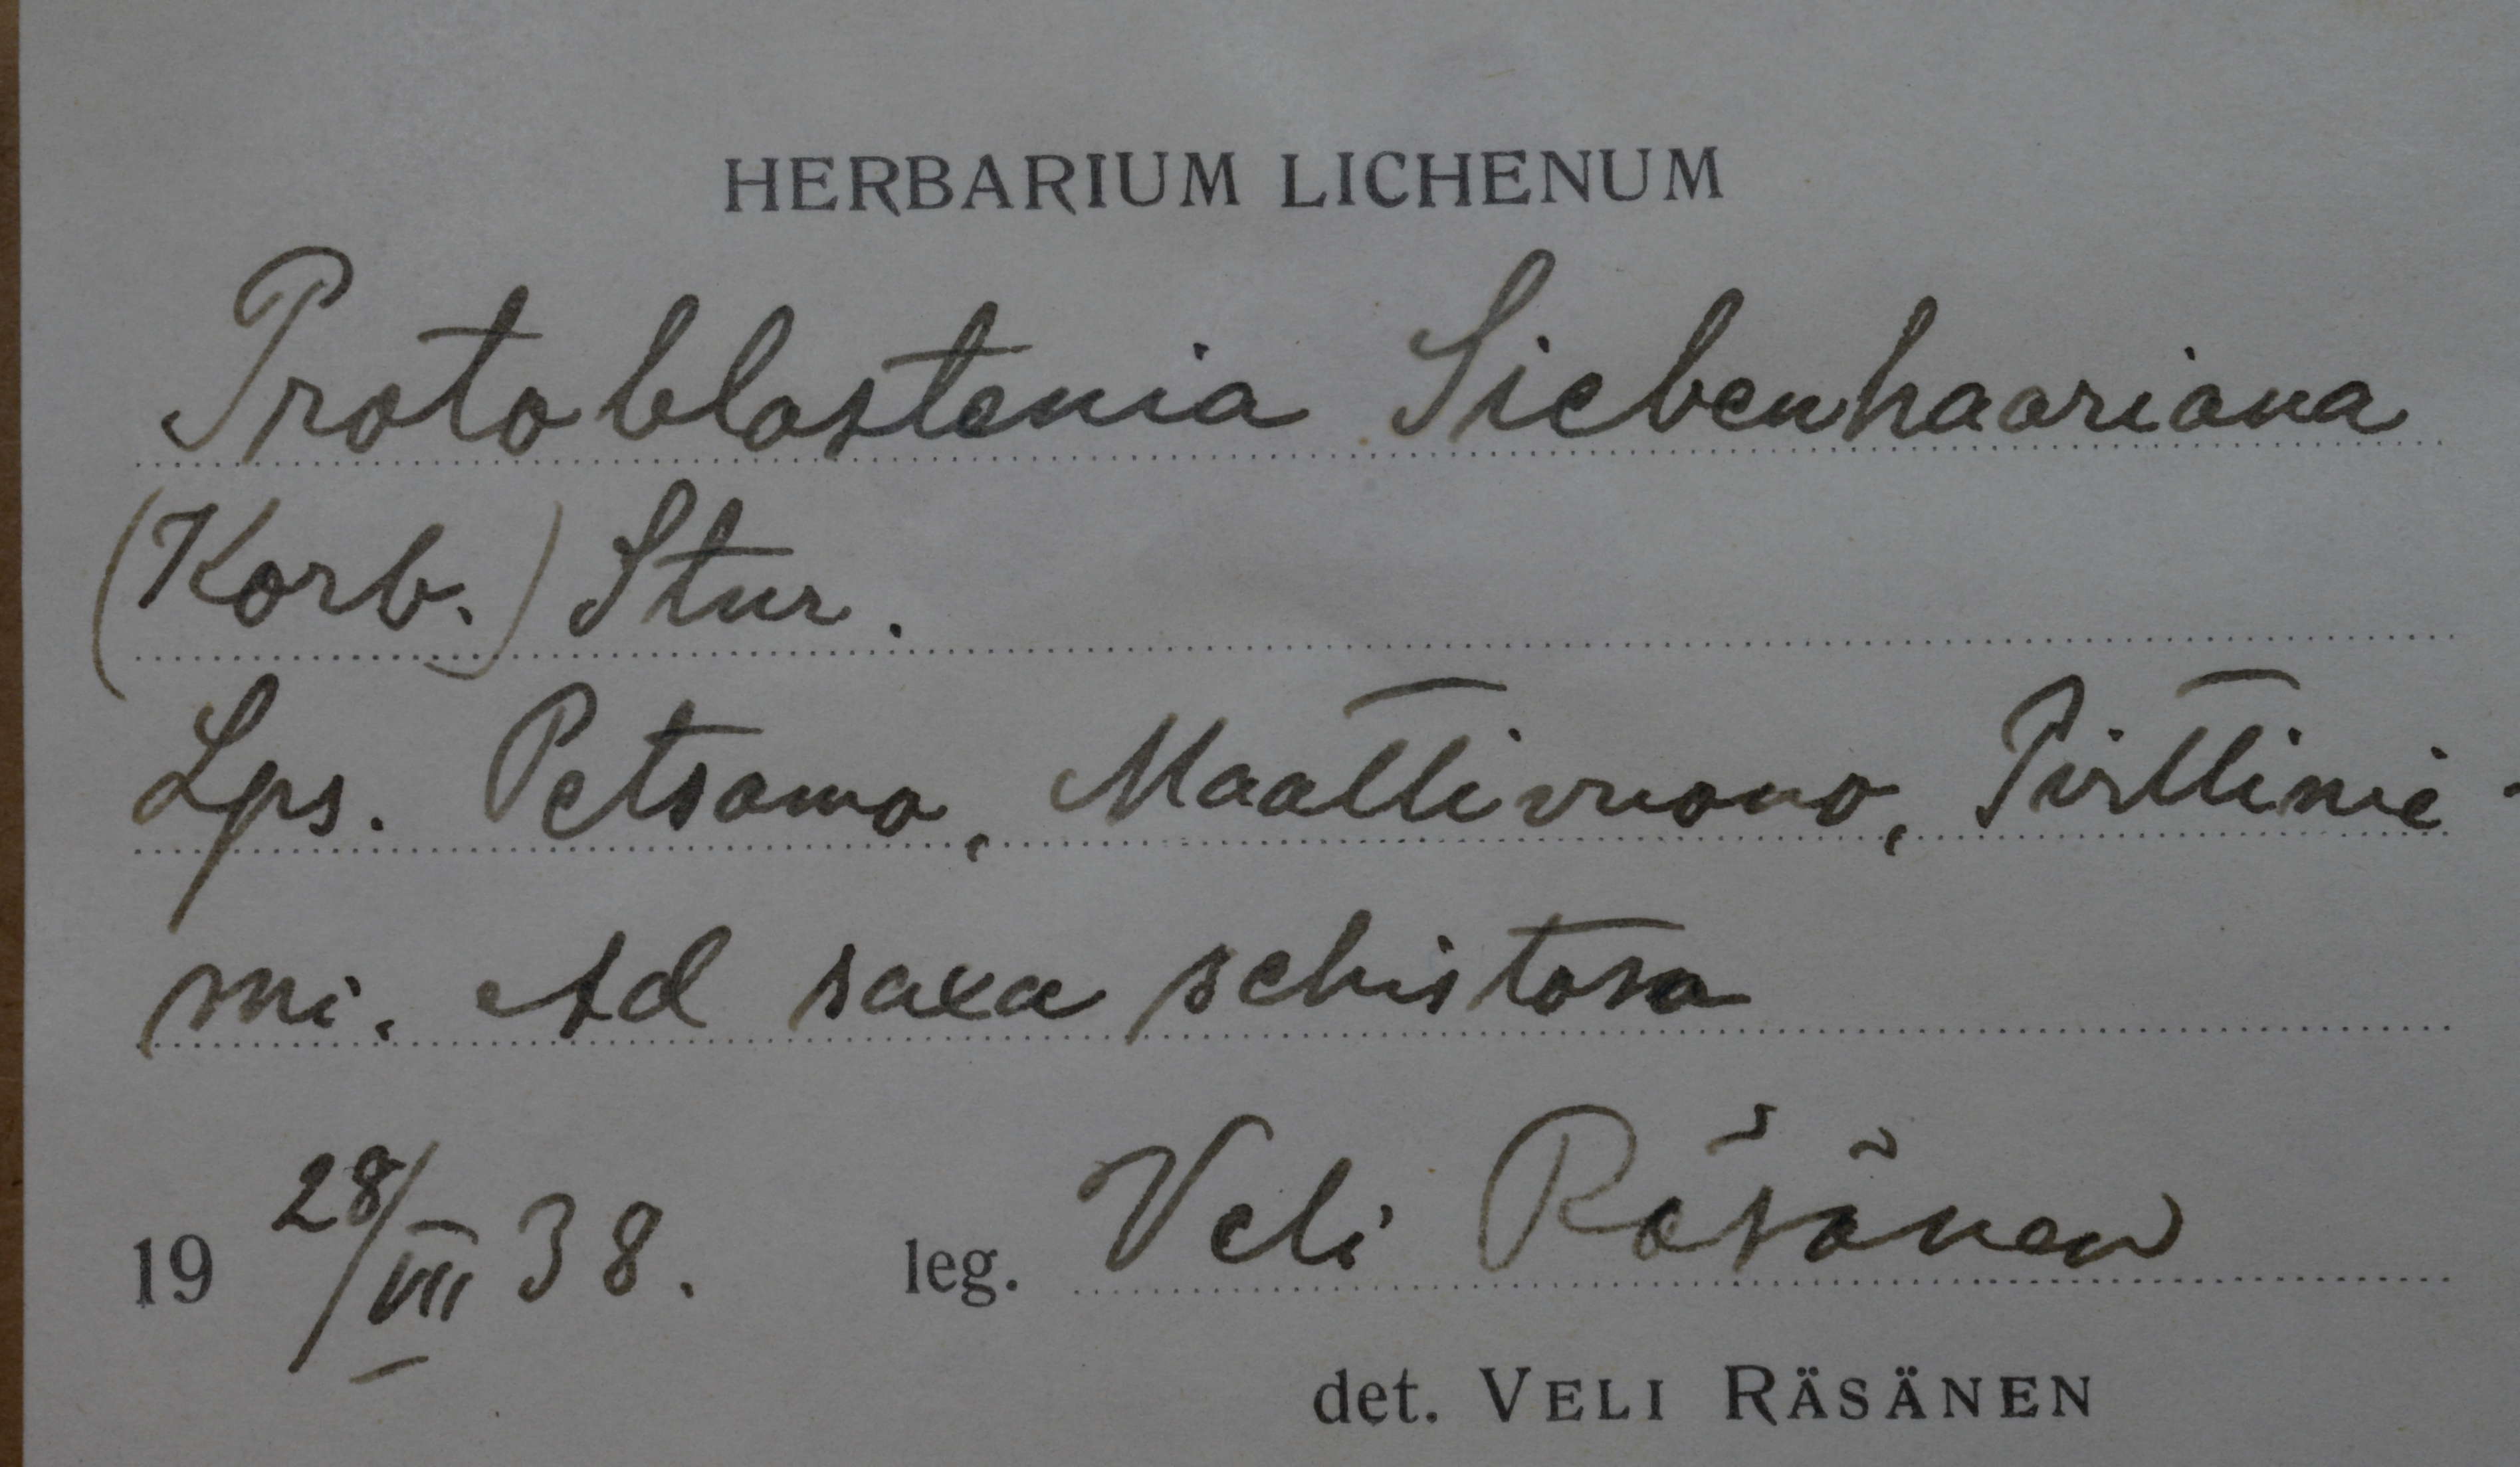 HERBARIUM LICHENUM
Protoblastenia Siebenhaariana
(Korb.) Stnr.
Lps. Petsamo, Maattivuono, Pirttinie-
mi. Ad saxa schistosa
19 28/VIII 38. leg. Veli Räsänen
det. VELI RÄSÄNEN